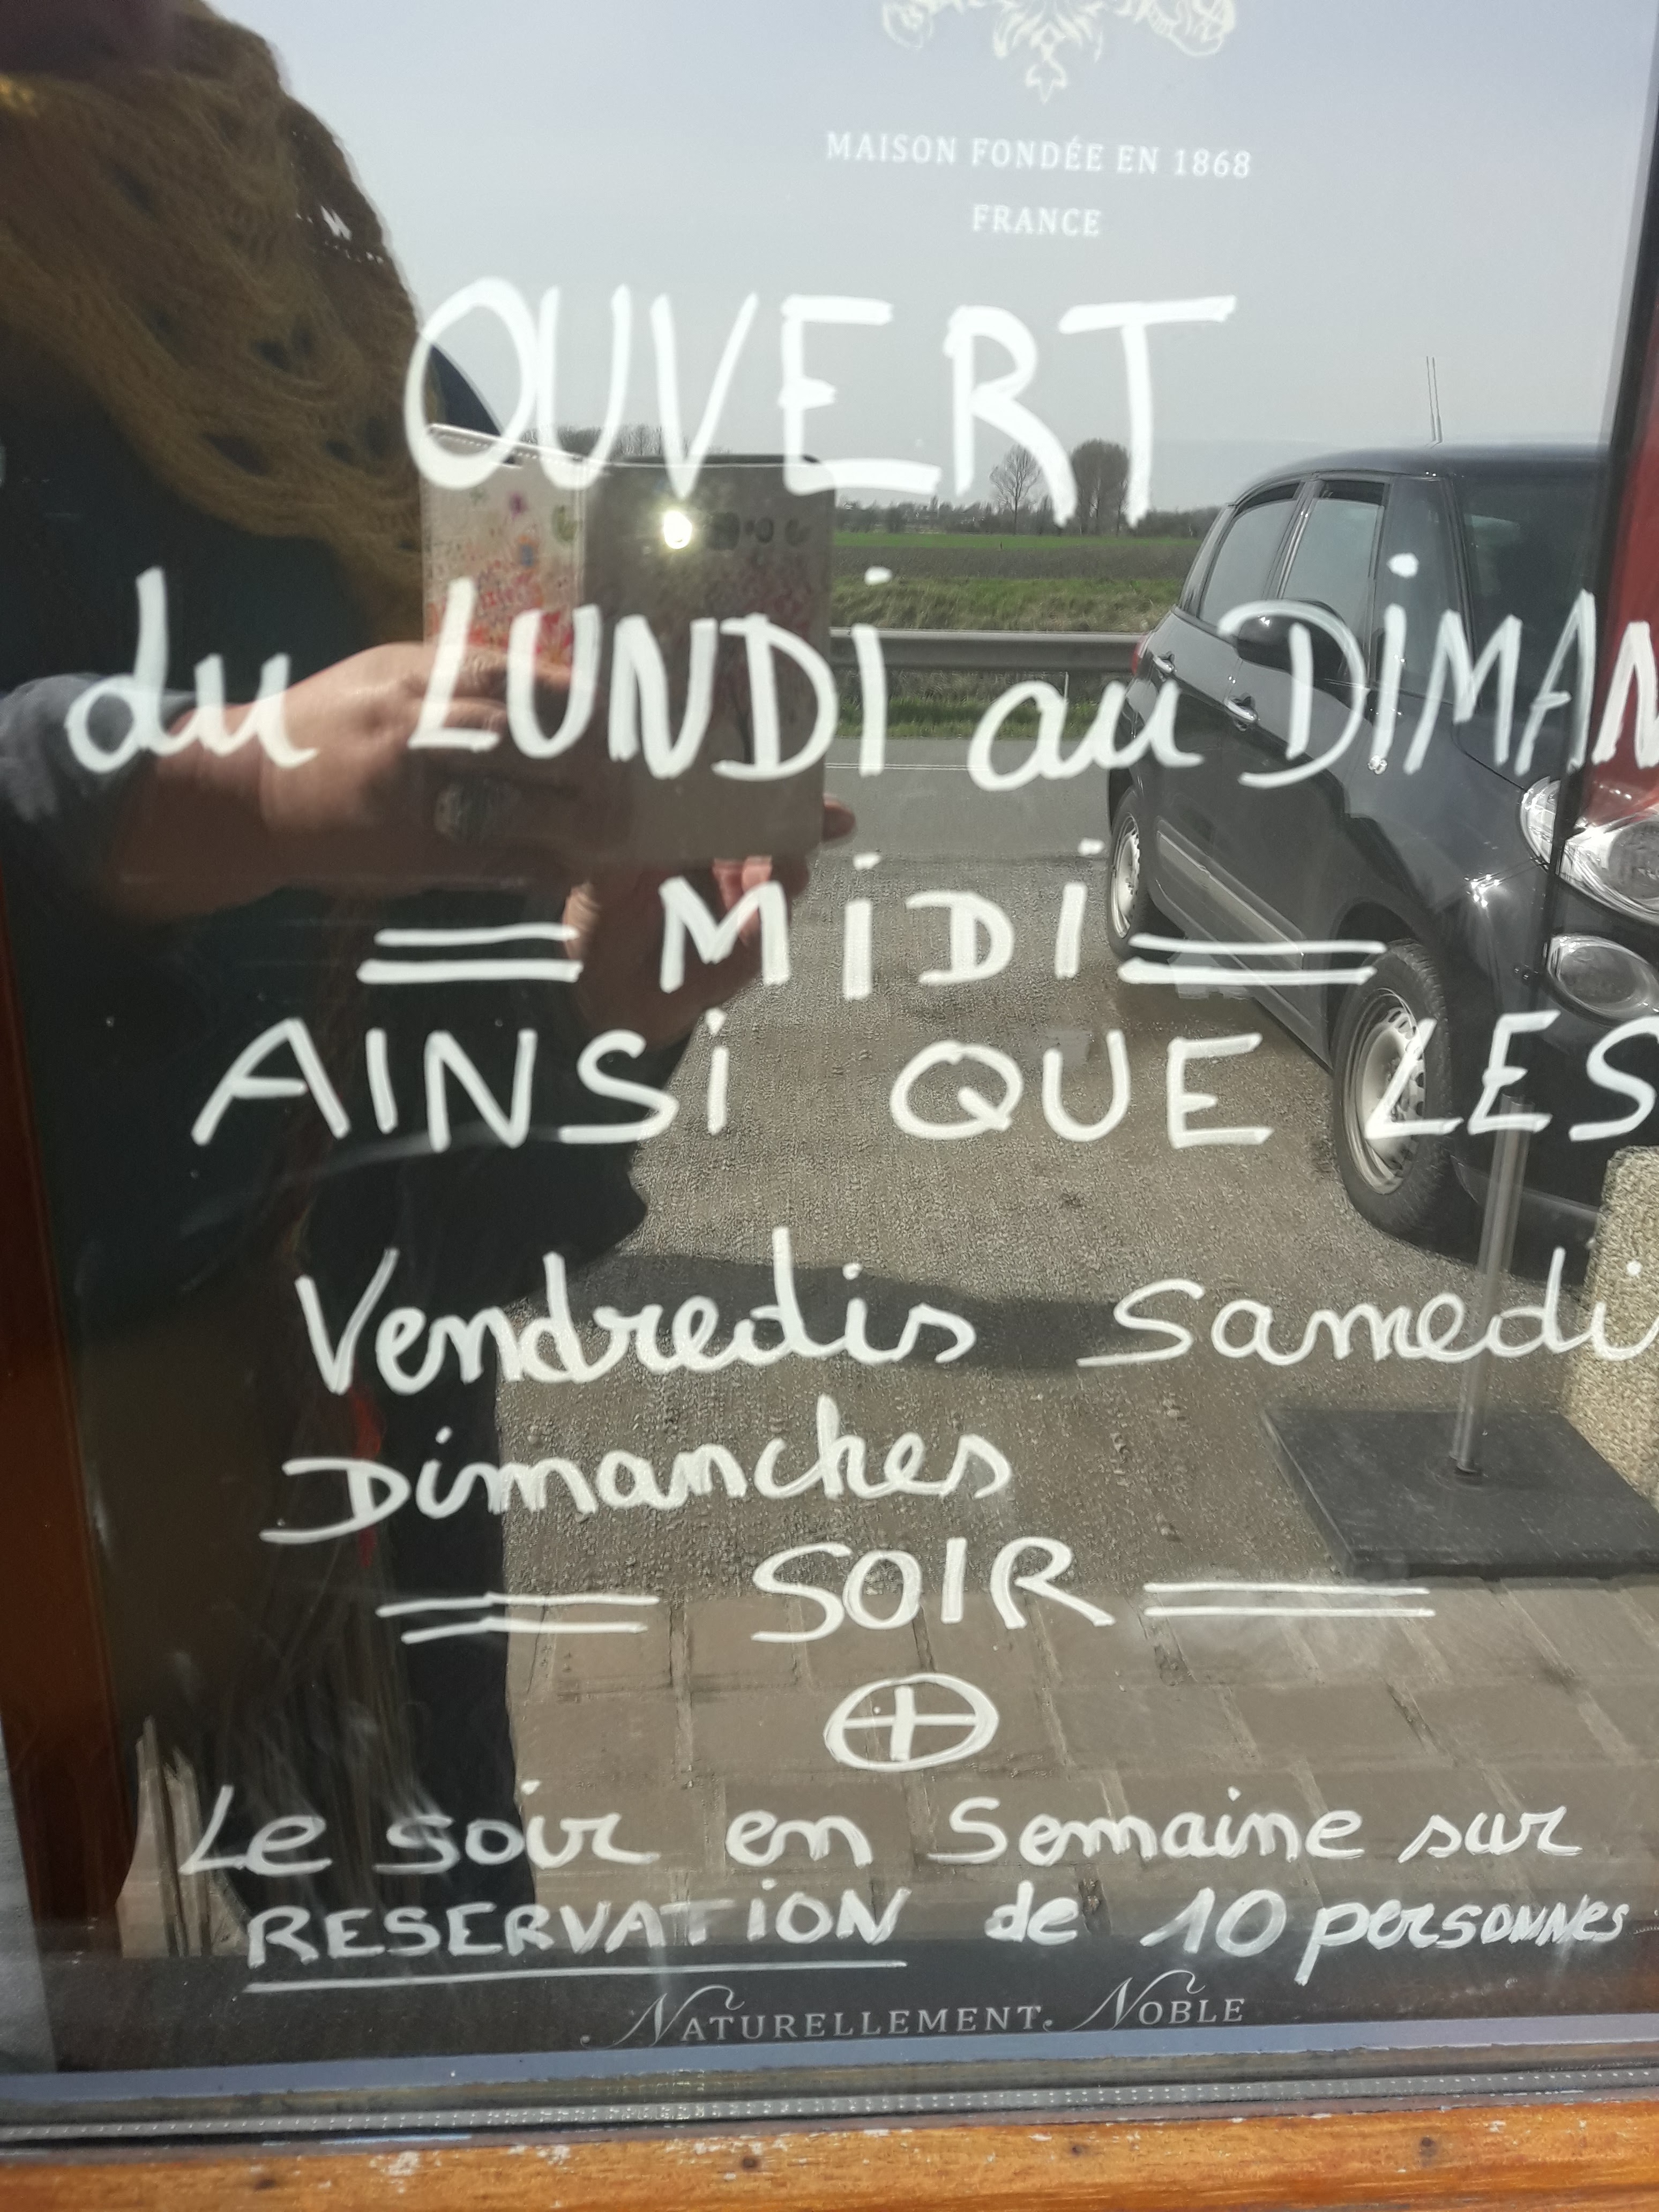 MAISON FONDÉE EN 1868
FRANCE
OUVERT
du LUNDI au DIMAN
= MIDI =
AINSI QUE LES
Vendredis Samedi
Dimanches
= SOIR =
⊕
Le soir en Semaine sur
RESERVATION de 10 personnes
NATURELLEMENT NOBLE